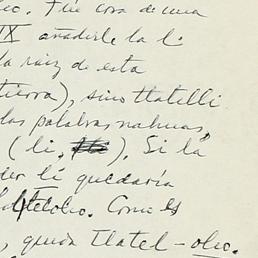 . Fue cosa de una
IX añadirle la l.
la raiz de esta
tierra), sino tlatelli
las palabras nahuas,
(li, ). Si la
li quedaría
. Como es
, queda Tlatel-olco.